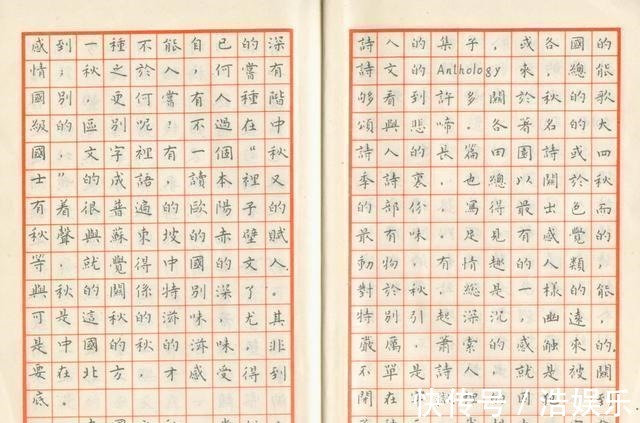 詩人的集子，或各國的
詩文的Anthology來，總能
够看到許多關於秋的歌
頌與悲啼。各著名的大
詩人的長篇田園詩或四
季詩裏，也總以關於秋
的部份，寫得最出色而
最有味。足見有感覺的
動物，有情趣的人類，
對於秋，總是一樣的能
特别引起深沉，幽遠，
嚴厲，蕭索的感觸來的。
不單是詩人，就是被關
閉在
感到一種不能自已的深
情；秋之於人，何嘗有
國別，更何嘗有人種階
級的區別呢？不過在中
國，文字裡有一個“秋
士”的成語，讀本裡又
有着很普遍的歐陽子的
秋聲與蘇東坡的赤壁賦
等，就覺得中國的文人，
與秋的關係特別深了。
可是這秋的滋味，尤其
是中國的秋的滋味，非
要在北方，才感受得到
底。
快传号 / 浩娱乐